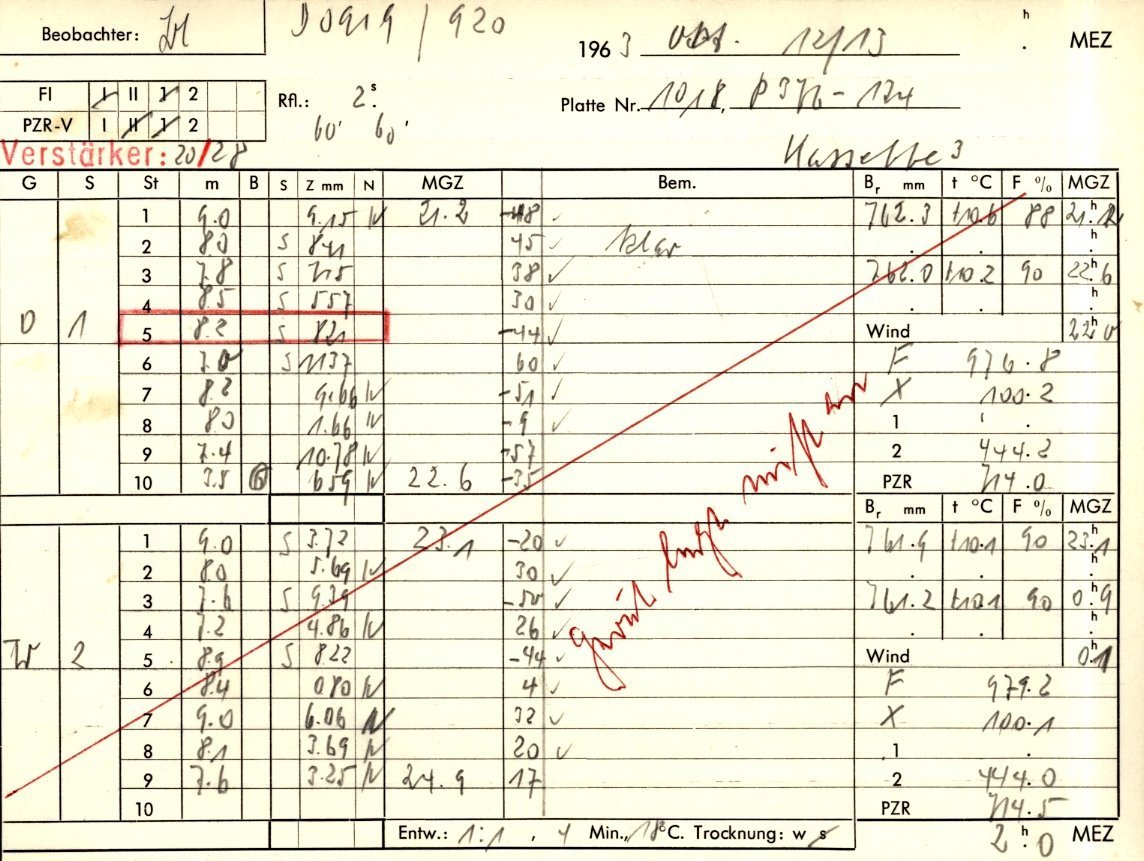 Beobachter:
D 0919 / 920
1963 Okt. 12/13 h . MEZ
FI I II 1 2
PZR-V I II 1 2
Rfl.: 2.s
60' 60'
Platte Nr. 1018,
Verstärker: 20/28
Kassette 3
G S St m B S Z mm N MGZ Bem. Br mm t °C F % MGZ
1 9.0 9.15 N 21.2 -48 762.3 +10.6 88 21.h2
2 8.0 S 8.41 45 klar . . h
3 7.8 S 7.15 38 762.0 +10.2 90 22.h6
4 8.5 S 5.57 30 . . h
D 1 5 8.2 S 8.21 -44 Wind 22h0
6 7.0 S 11.37 60 F 976.8
7 8.2 9.66 N -51 X 100.2
8 8.0 1.66 N -9 1 .
9 7.4 10.78 N -57 2 444.2
10 3.5 6 6.59 N 22.6 -35 PZR 714.0
Br mm t °C F % MGZ
1 9.0 S 3.72 23.1 -20 761.9 +10.1 90 23.h1
2 8.0 5.69 N 30 . . h
3 7.6 S 9.39 -50 761.2 +10.1 90 0.h9
4 7.2 4.86 N 26 . . h
W 2 5 8.9 S 8.22 -44 Wind 0h1
6 8.4 0.80 N 4 F 979.2
7 9.0 6.06 N 32 X 100.1
8 8.1 3.69 N 20 1 .
9 7.6 3.25 N 24.9 17 2 444.0
10 PZR 714.5
Entw.: 1:1 , 4 Min., 18°C. Trocknung: w s 2.h0 MEZ